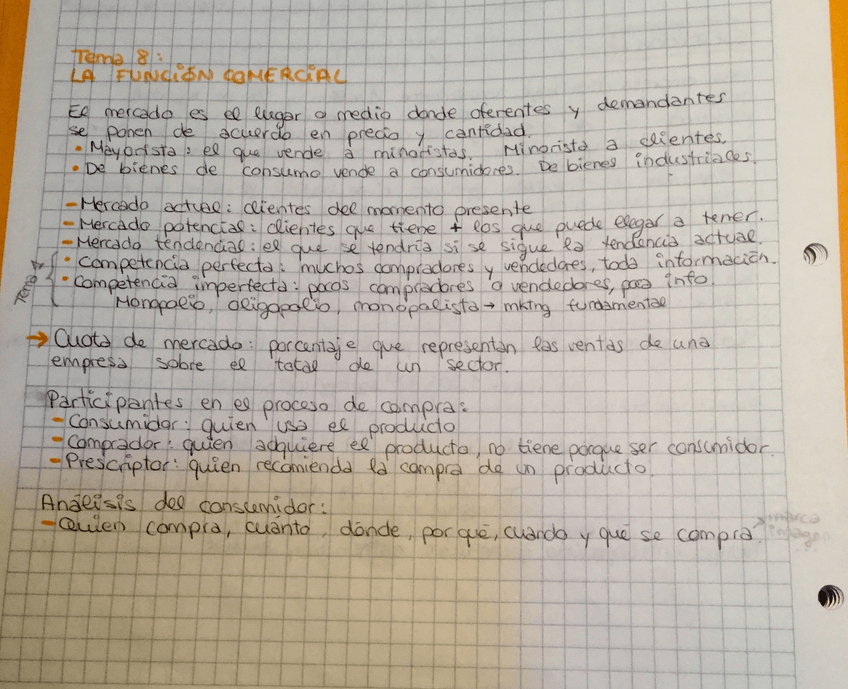 Tema 8:
LA FUNCIÓN COMERCIAL
El mercado es el lugar o medio donde oferentes y demandantes
se ponen de acuerdo en precio y cantidad.
• Mayorista: el que vende a minoristas. Minorista a clientes.
• De bienes de consumo vende a consumidores. De bienes industriales.
- Mercado actual: clientes del momento presente
- Mercado potencial: clientes que tiene + los que puede llegar a tener.
- Mercado tendencial: el que se tendría si se sigue la tendencia actual.
• Competencia perfecta: muchos compradores y vendedores, toda información.
• Competencia imperfecta: pocos compradores o vendedores, poca info.
Tema
Monopolio, oligopolio, monopolista → mktng fundamental
→ Cuota de mercado: porcentaje que representan las ventas de una
empresa sobre el total de un sector.
Participantes en el proceso de compra:
- Consumidor: quien usa el producto
- Comprador: quien adquiere el producto, no tiene porque ser consumidor.
- Prescriptor: quien recomienda la compra de un producto.
Análisis del consumidor:
- Quien compra, cuánto, dónde, por qué, cuando y qué se compra
marca
imagen